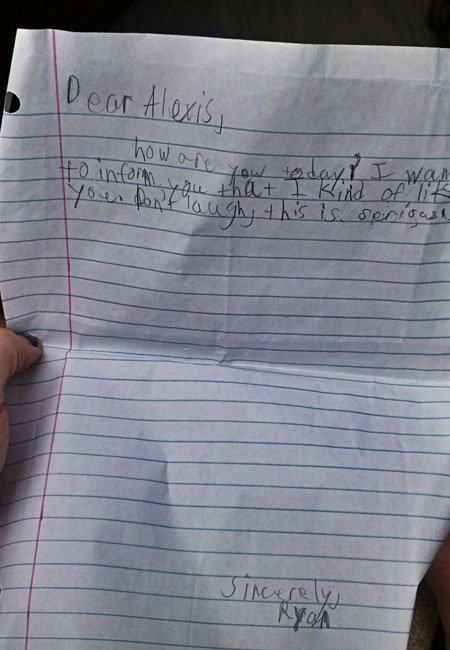 Dear Alexis,
how are you today? I wan
to inform you that I kind of lik
you. Don't laugh, this is. serigash
Sincerely,
Ryan